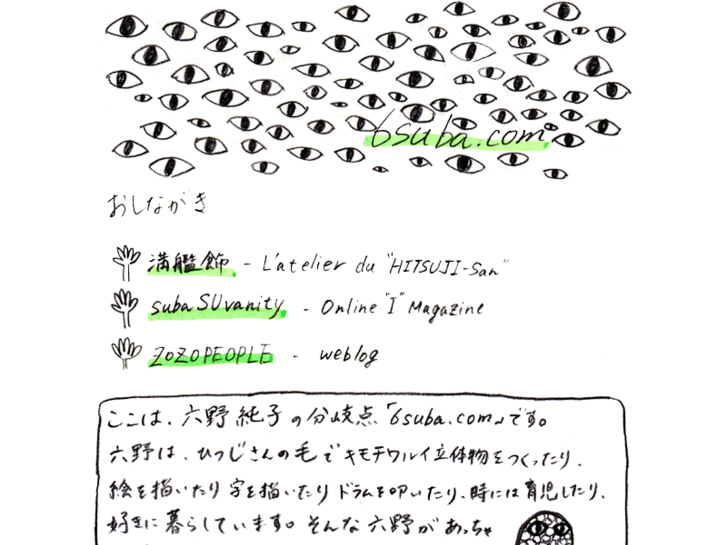 6suba.com
おしながき
満艦飾 - L'atelier du "HITSUJI-San"
suba SUvanity - Online "I" Magazine
ZOZOPEOPLE - weblog
ここは、六野純子の分岐点「6suba.com」です。
六野は、ひつじさんの毛でキモチワルイ立体物をつくったり、
絵を描いたり字を描いたりドラムを叩いたり、時には育児したり、
好きに暮らしています。そんな六野があっちゃ